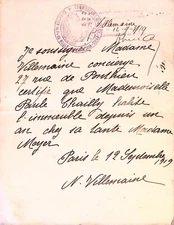 Villemaine
Je soussignée Madame
Villemaine concierge
22 rue de Ponthieu
certifie que Mademoiselle
Paule Chailley habite
l'immeuble depuis un
an chez sa tante Madame
Meyer
Paris le 12 Septembre
1919
N. Villemaine